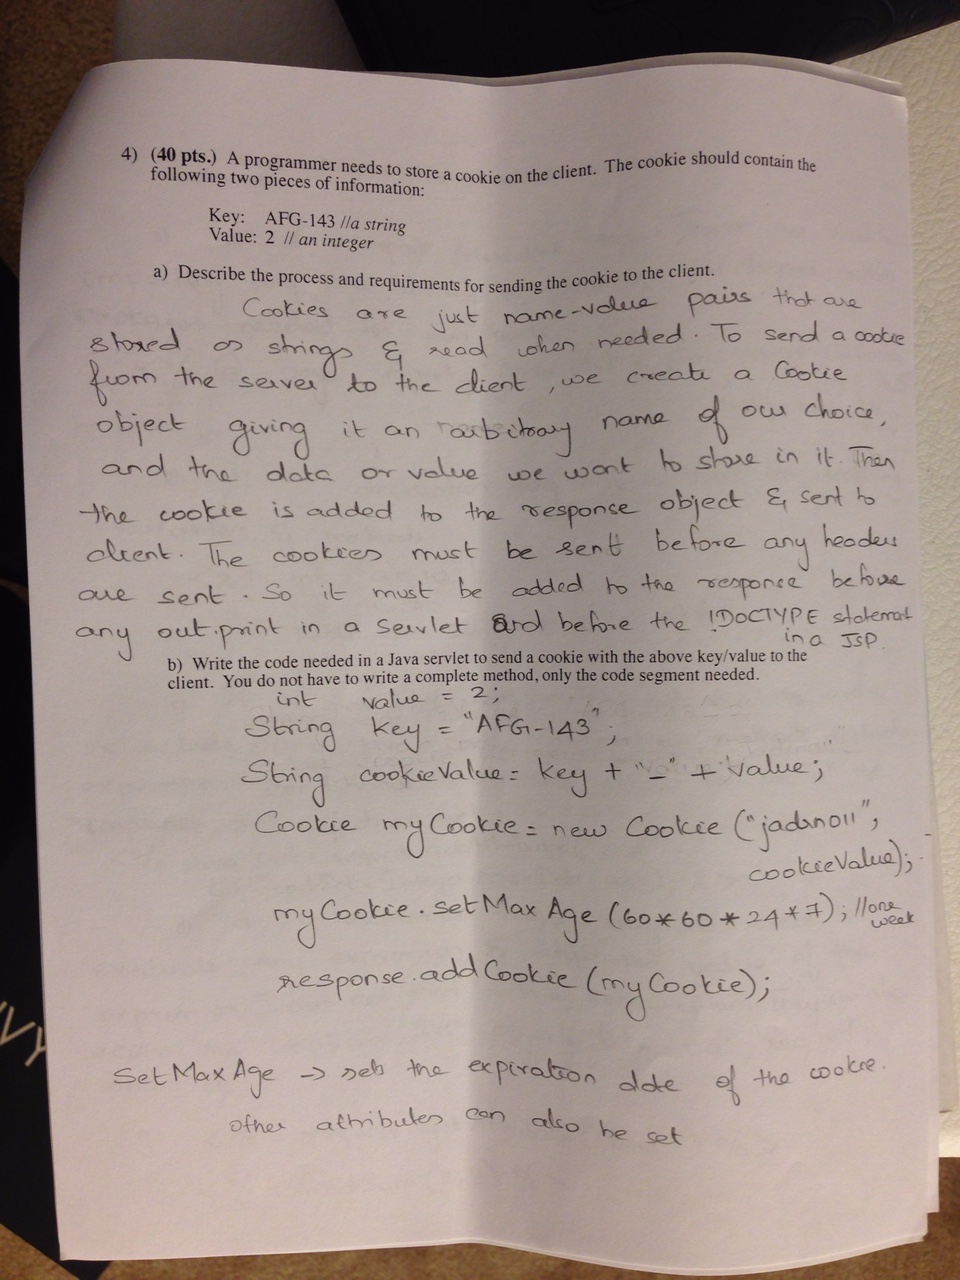 4) (40 pts.) A programmer needs to store a cookie on the client. The cookie should contain the
following two pieces of information:
Key: AFG-143 //a string
Value: 2 // an integer
a) Describe the process and requirements for sending the cookie to the client.
Cookies are just name-value pairs that are
stored as strings & read when needed. To send a cookie
from the server to the client, we create a Cookie
object giving it an arbitrary name of our choice,
and the data or value we want to store in it. Then
the cookie is added to the response object & sent to
client. The cookies must be sent before any headers
are sent. So it must be added to the response before
any out.print in a Servlet and before the !DOCTYPE statement
in a JSP.
b) Write the code needed in a Java servlet to send a cookie with the above key/value to the
client. You do not have to write a complete method, only the code segment needed.
int value = 2;
String key = "AFG-143";
String cookieValue = key + "_" + value;
Cookie myCookie = new Cookie ("jadrn011",
cookieValue);
myCookie.setMaxAge (60*60*24*7); //one
week
response.addCookie (myCookie);
SetMaxAge -> sets the expiration date of the cookie.
other attributes can also be set